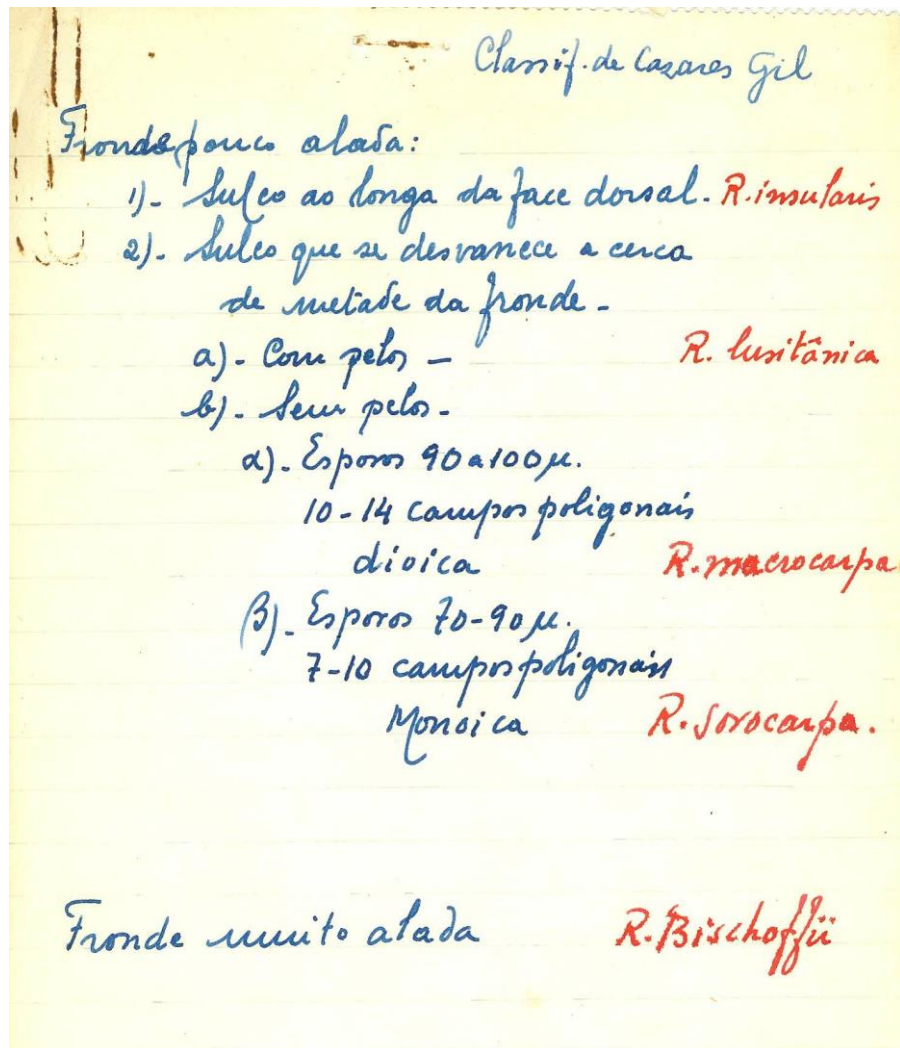 Classif. de Cazares Gil
Fronde pouco alada:
1)- Sulco ao longa da face dorsal. R. insularis
2)- Sulco que se desvanece a cerca
de metade da fronde -
a)- Com pelos - R. lusitânica
b)- Sem pelos -
α)- Esporos 90 a 100 µ.
10-14 campos poligonais
dioica R. macrocarpa
β)- Esporos 70-90 µ.
7-10 campos poligonais
Monoica R. Sorocarpa.
Fronde muito alada R. Bischoffii